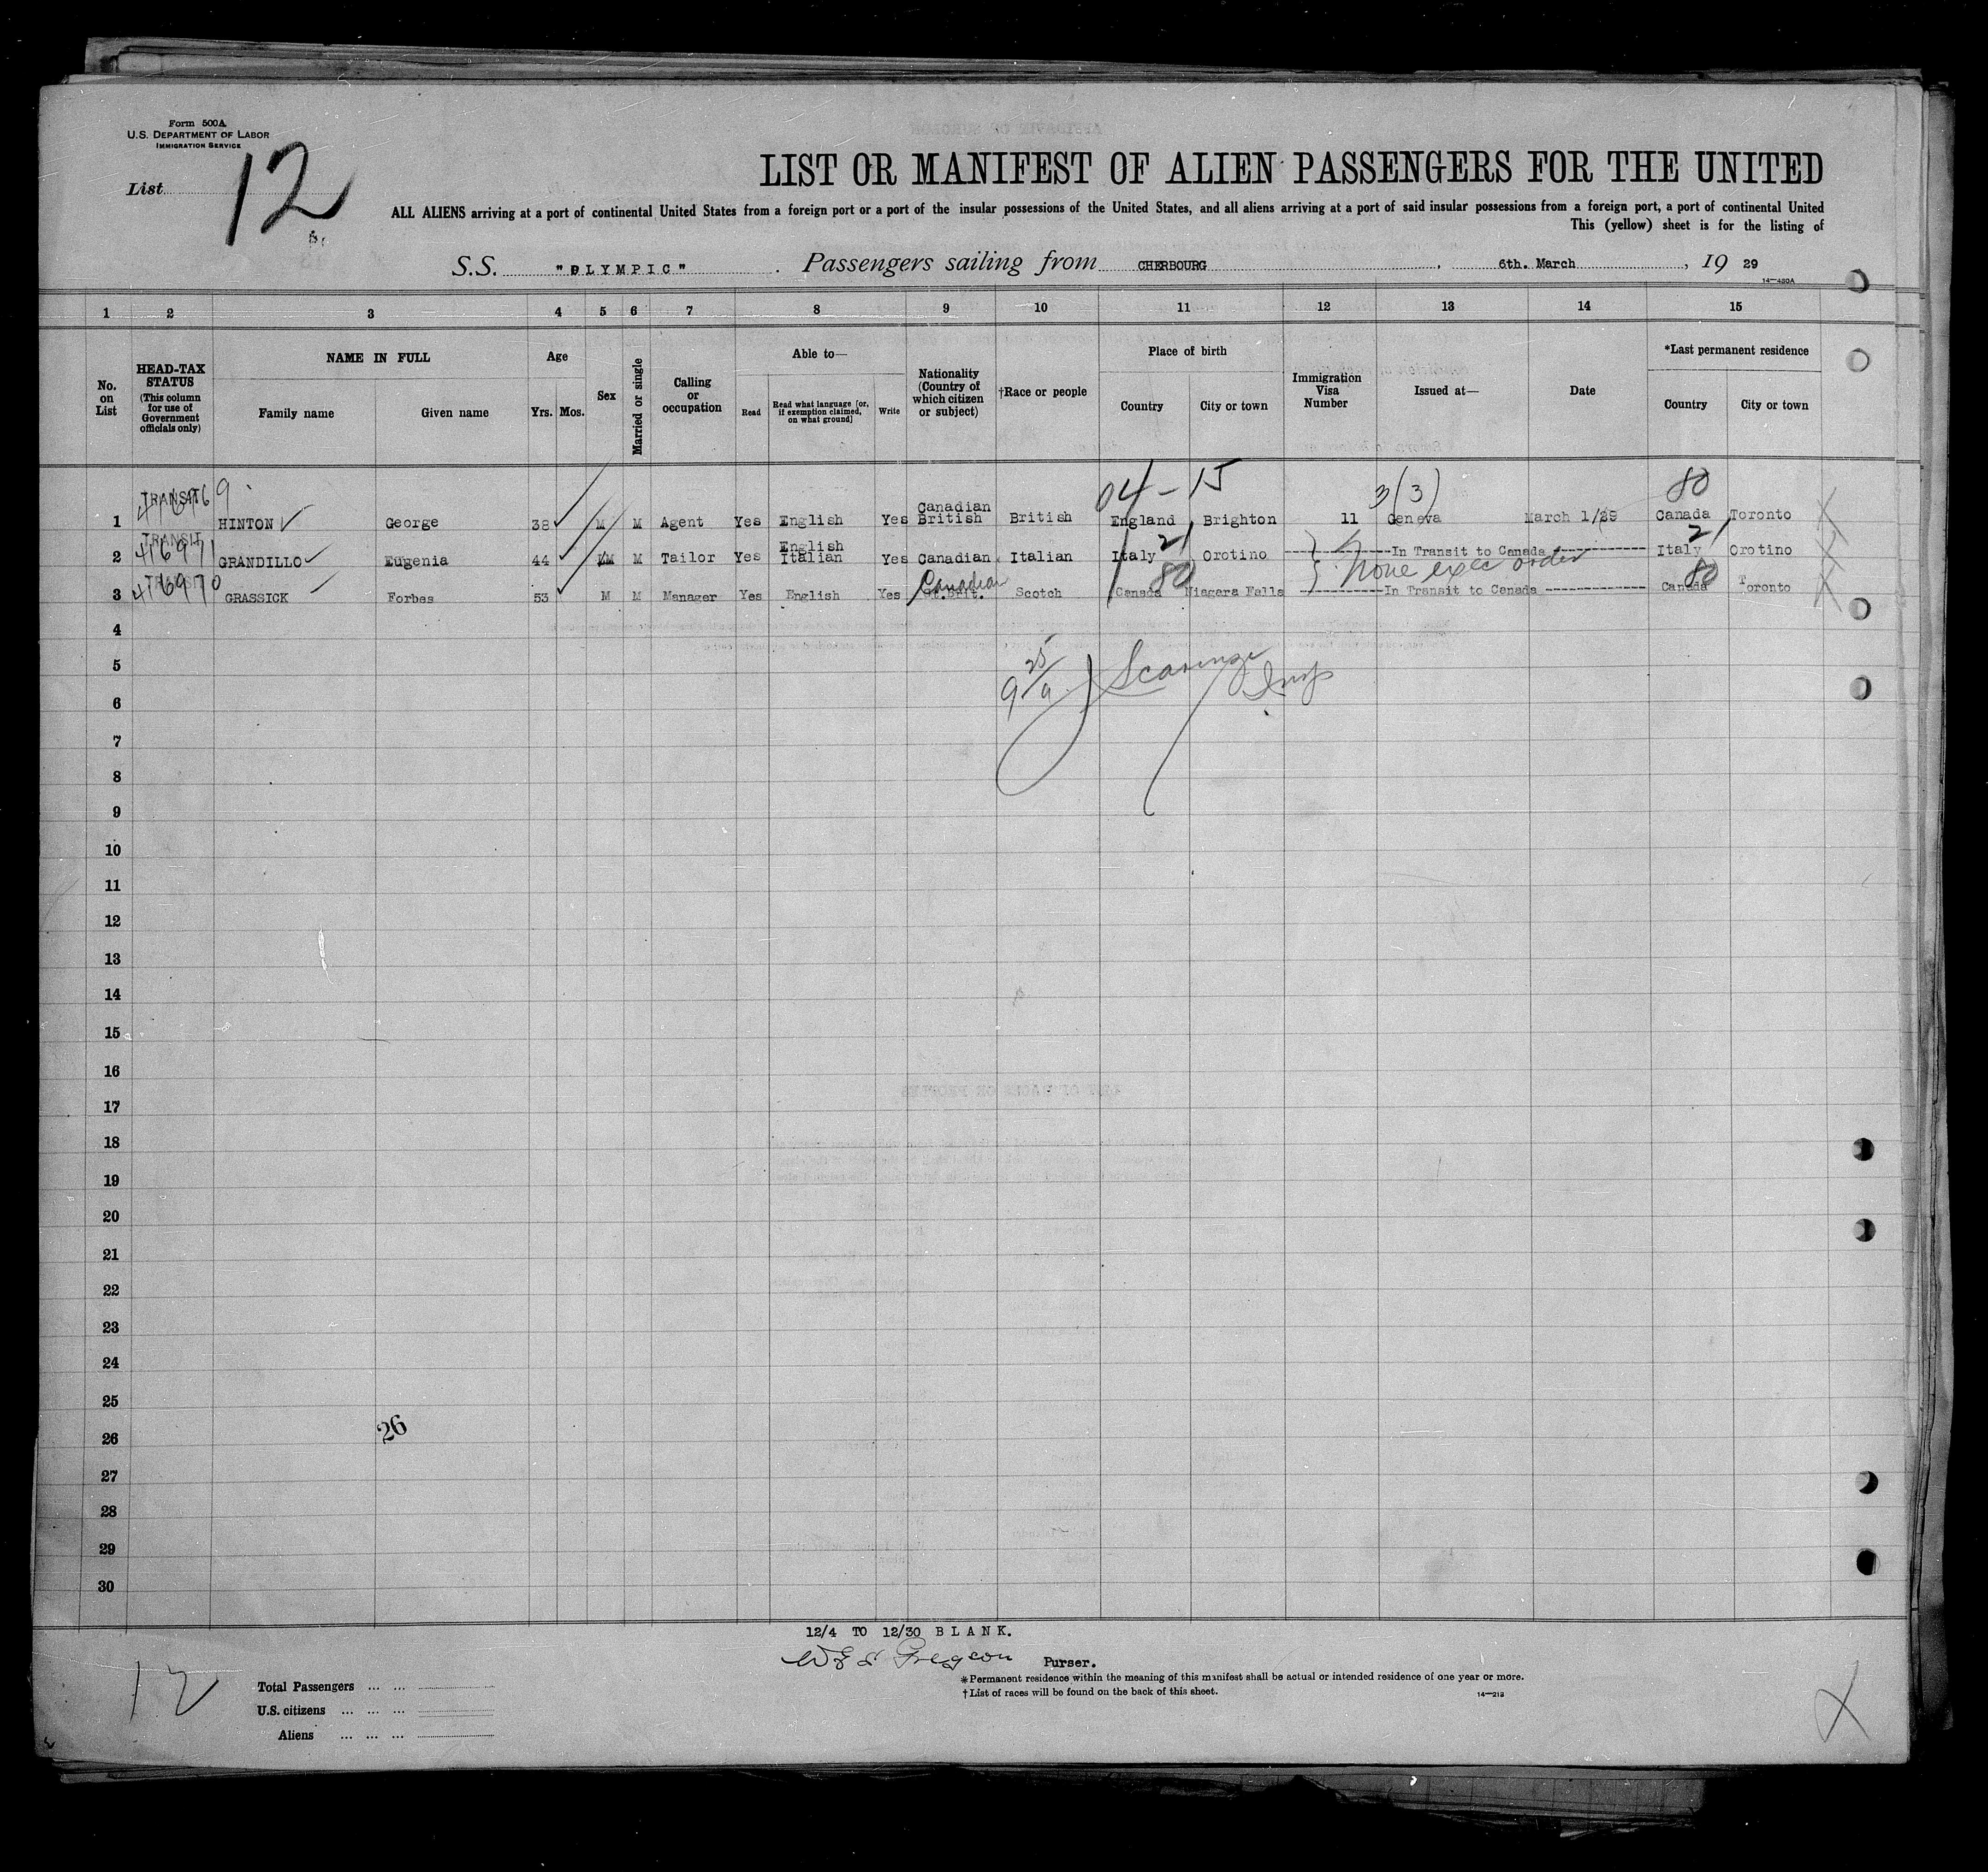 Form 500A
U.S. DEPARTMENT OF LABOR
IMMIGRATION SERVICE
List 12
LIST OR MANIFEST OF ALIEN PASSENGERS FOR THE UNITED
ALL ALIENS arriving at a port of continental United States from a foreign port or a port of the insular possessions of the United States, and all aliens arriving at a port of said insular possessions from a foreign port, a port of continental United
This (yellow) sheet is for the listing of
S.S. "OLYMPIC" . Passengers sailing from CHERBOURG , 6th. March , 19 29
14—480A
1 2 3 4 5 6 7 8 9 10 11 12 13 14 15
No. on List
HEAD-TAX STATUS (This column for use of Government officials only)
NAME IN FULL
Family name Given name
Age
Yrs. Mos.
Sex
Married or single
Calling or occupation
Able to—
Read
Read what language [or, if exemption claimed, on what ground]
Write
Nationality (Country of which citizen or subject)
†Race or people
Place of birth
Country City or town
Immigration Visa Number
Issued at—
Date
*Last permanent residence
Country City or town
04 - 15 3(3) 80
TRANSIT 416969
Canadian
1 HINTON George 38 M M Agent Yes English Yes British British England Brighton 11 Geneva March 1/29 Canada Toronto
TRANSIT 416971
English 21 21
2 GRANDILLO Eugenia 44 M M Tailor Yes Italian Yes Canadian Italian Italy Orotino In Transit to Canada Italy Orotino
None exec order
TRANSIT 416970
Canadian 80 80
3 GRASSICK Forbes 53 M M Manager Yes English Yes Gt.Brit. Scotch Canada Niagara Falls In Transit to Canada Canada Toronto
4
5
6
7
8
9
10
11
12
13
14
15
16
17
18
19
20
21
22
23
24
25
26
26
27
28
29
30
12/4 TO 12/30 BLANK.
Purser.
*Permanent residence within the meaning of this manifest shall be actual or intended residence of one year or more.
†List of races will be found on the back of this sheet.
14—213
12
Total Passengers ... ...
U.S. citizens ... ... ...
Aliens ... ... ...